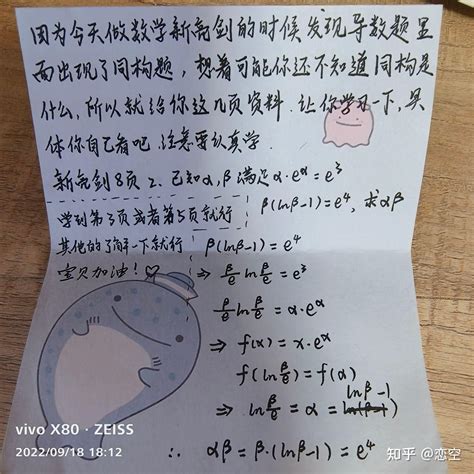 因为今天做数学新高剑的时候发现导数题里
面出现了同构题，想着可能你还不知道同构是
什么，所以就给你这几页资料.让你学习一下,具
体你自己看吧.注意要认真学.
新高剑8页 2、已知α,β满足α·e^α=e³
β(lnβ-1)=e⁴，求αβ
学到第3页或者第5页就行
其他的了解一下就行
宝贝加油！
β(lnβ-1)=e⁴
⇒ β/e ln β/e = e³
β/e ln β/e = α·e^α
⇒ f(x)=x·e^x
f(ln β/e)=f(α)
⇒ ln β/e = α = lnβ-1
∴ αβ=β·(lnβ-1)=e⁴
vivo X80 · ZEISS
2022/09/18 18:12
知乎 @恋空